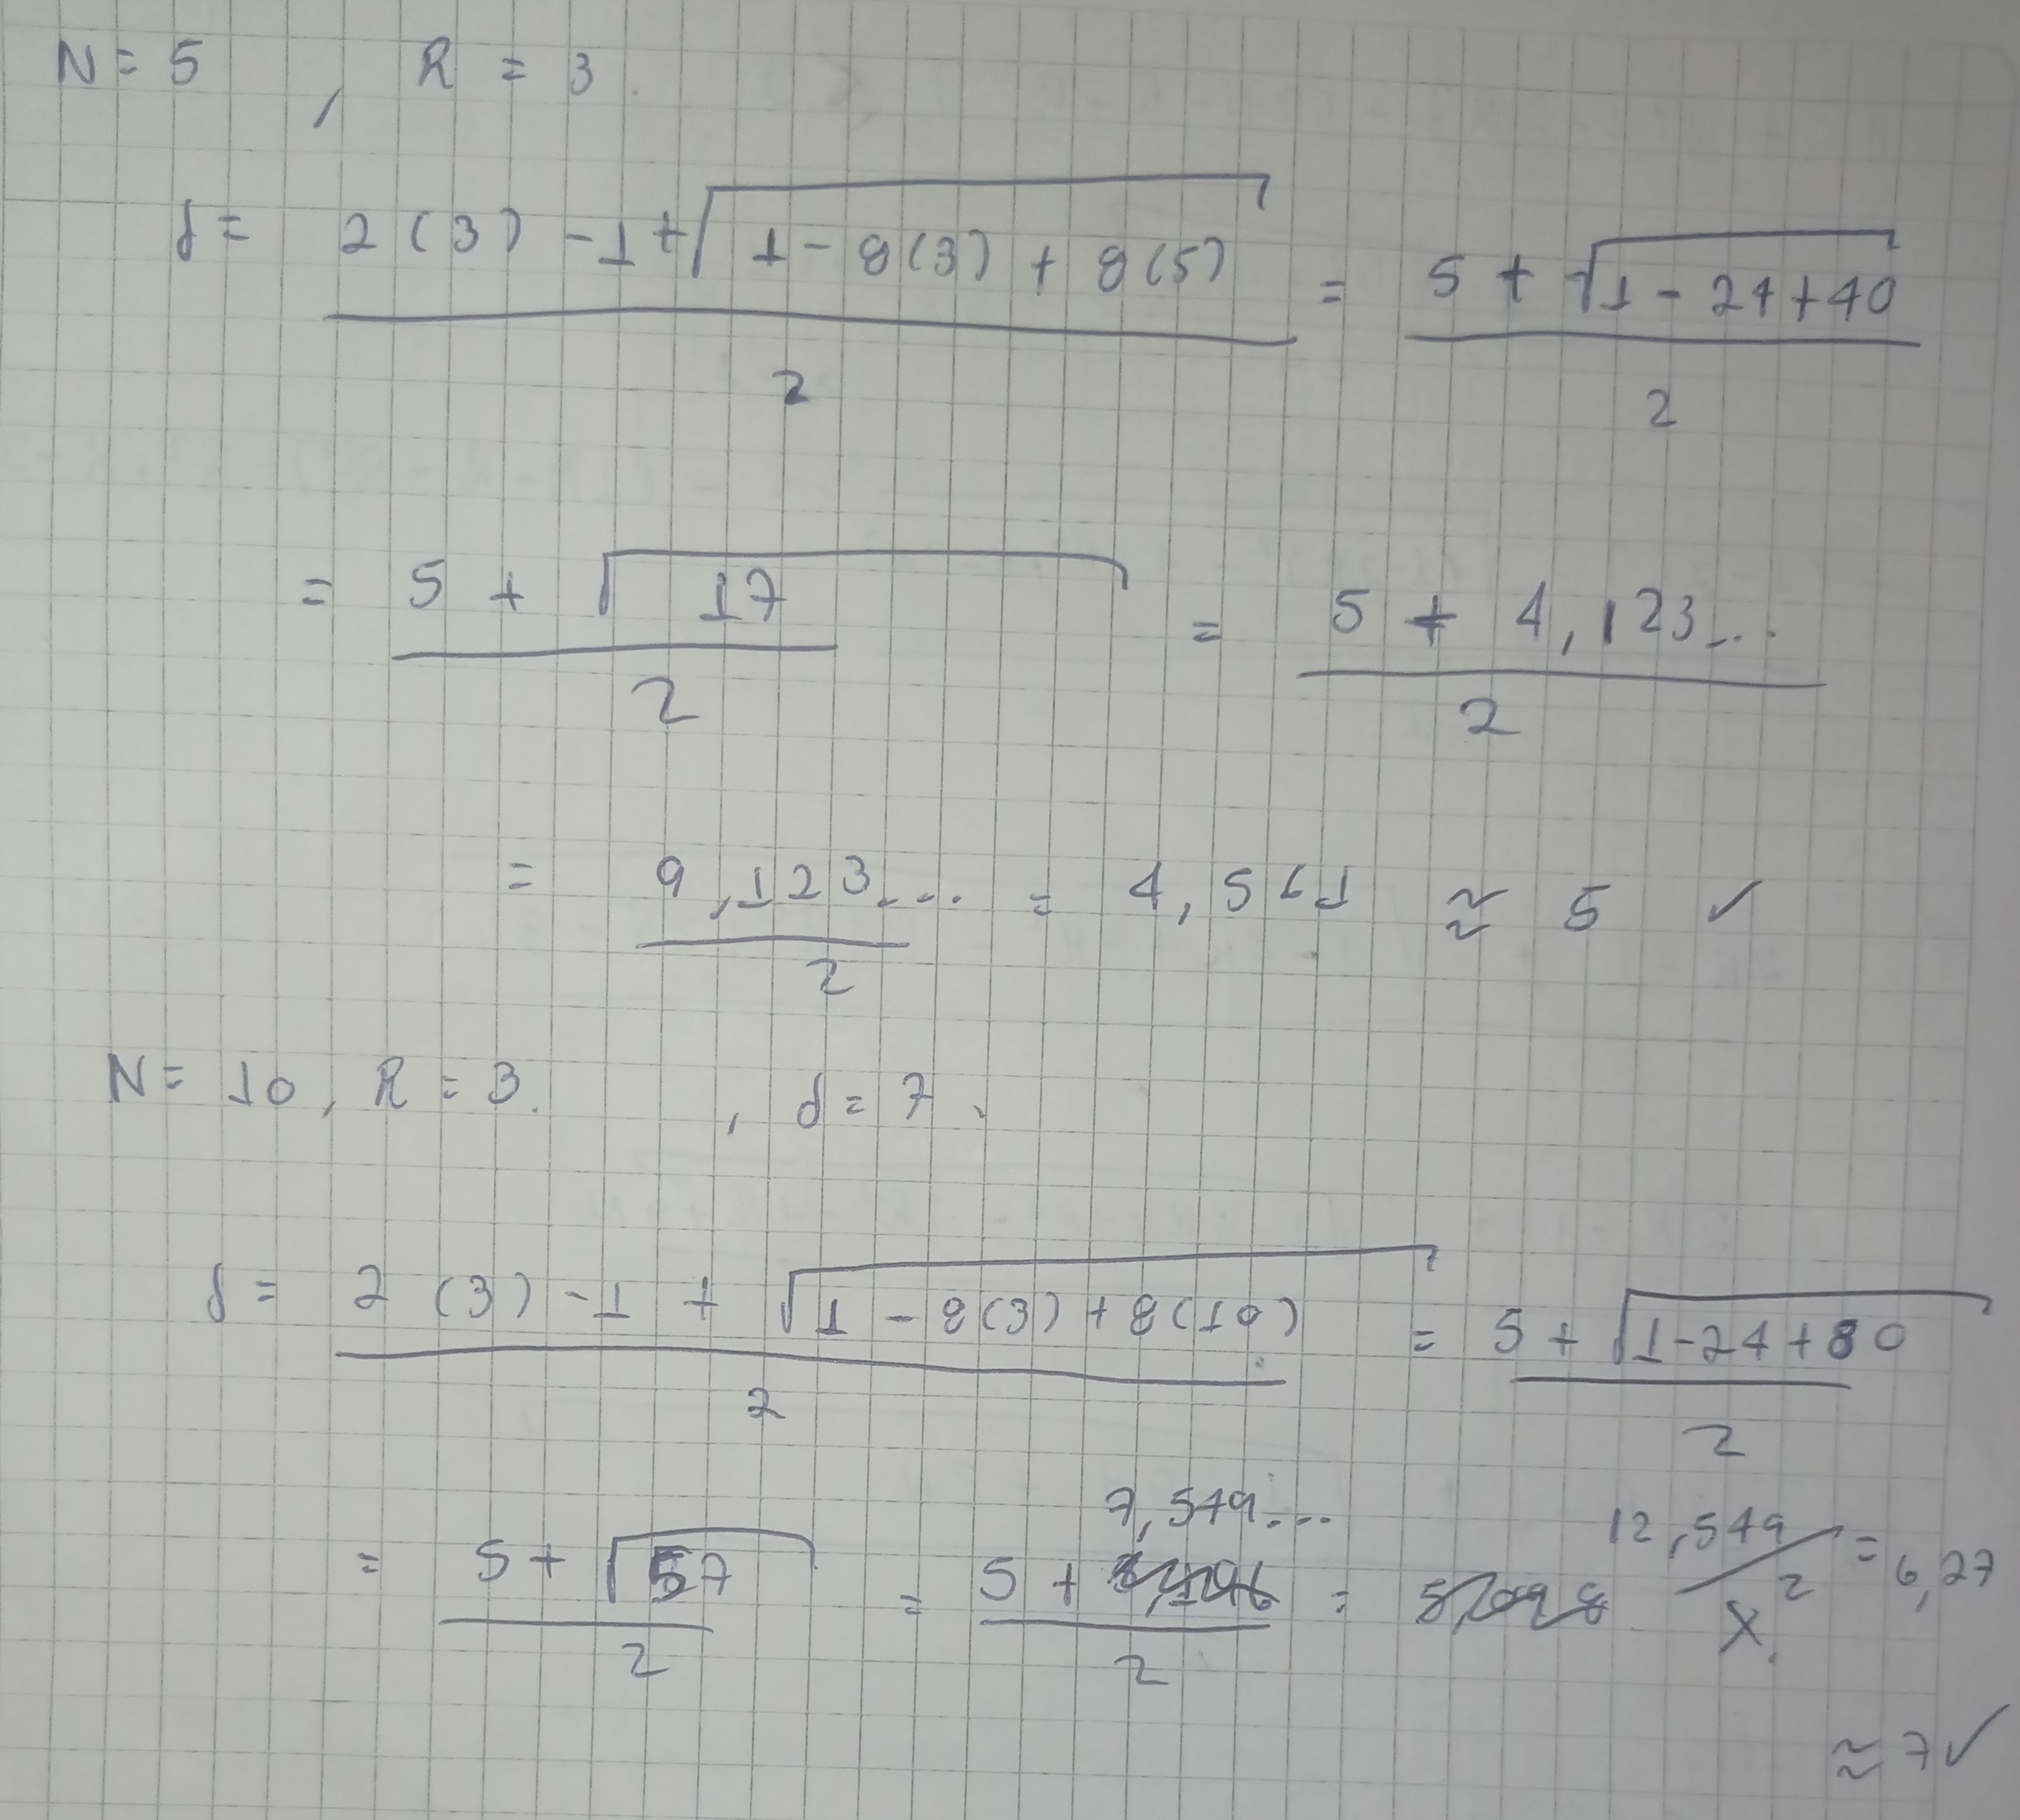 N = 5 , R = 3.
d = (2(3) - 1 + √(1 - 8(3) + 8(5))) / 2 = (5 + √(1 - 24 + 40)) / 2
= (5 + √17) / 2 = (5 + 4,123...) / 2
= 9,123... / 2 = 4,561 ≈ 5 ✓
N = 10, R = 3. , d = 7.
d = (2(3) - 1 + √(1 - 8(3) + 8(10))) / 2 = (5 + √(1 - 24 + 80)) / 2
= (5 + √57) / 2 = (5 + 7,549...) / 2 = 12,549 / 2 = 6,27
≈ 7 ✓